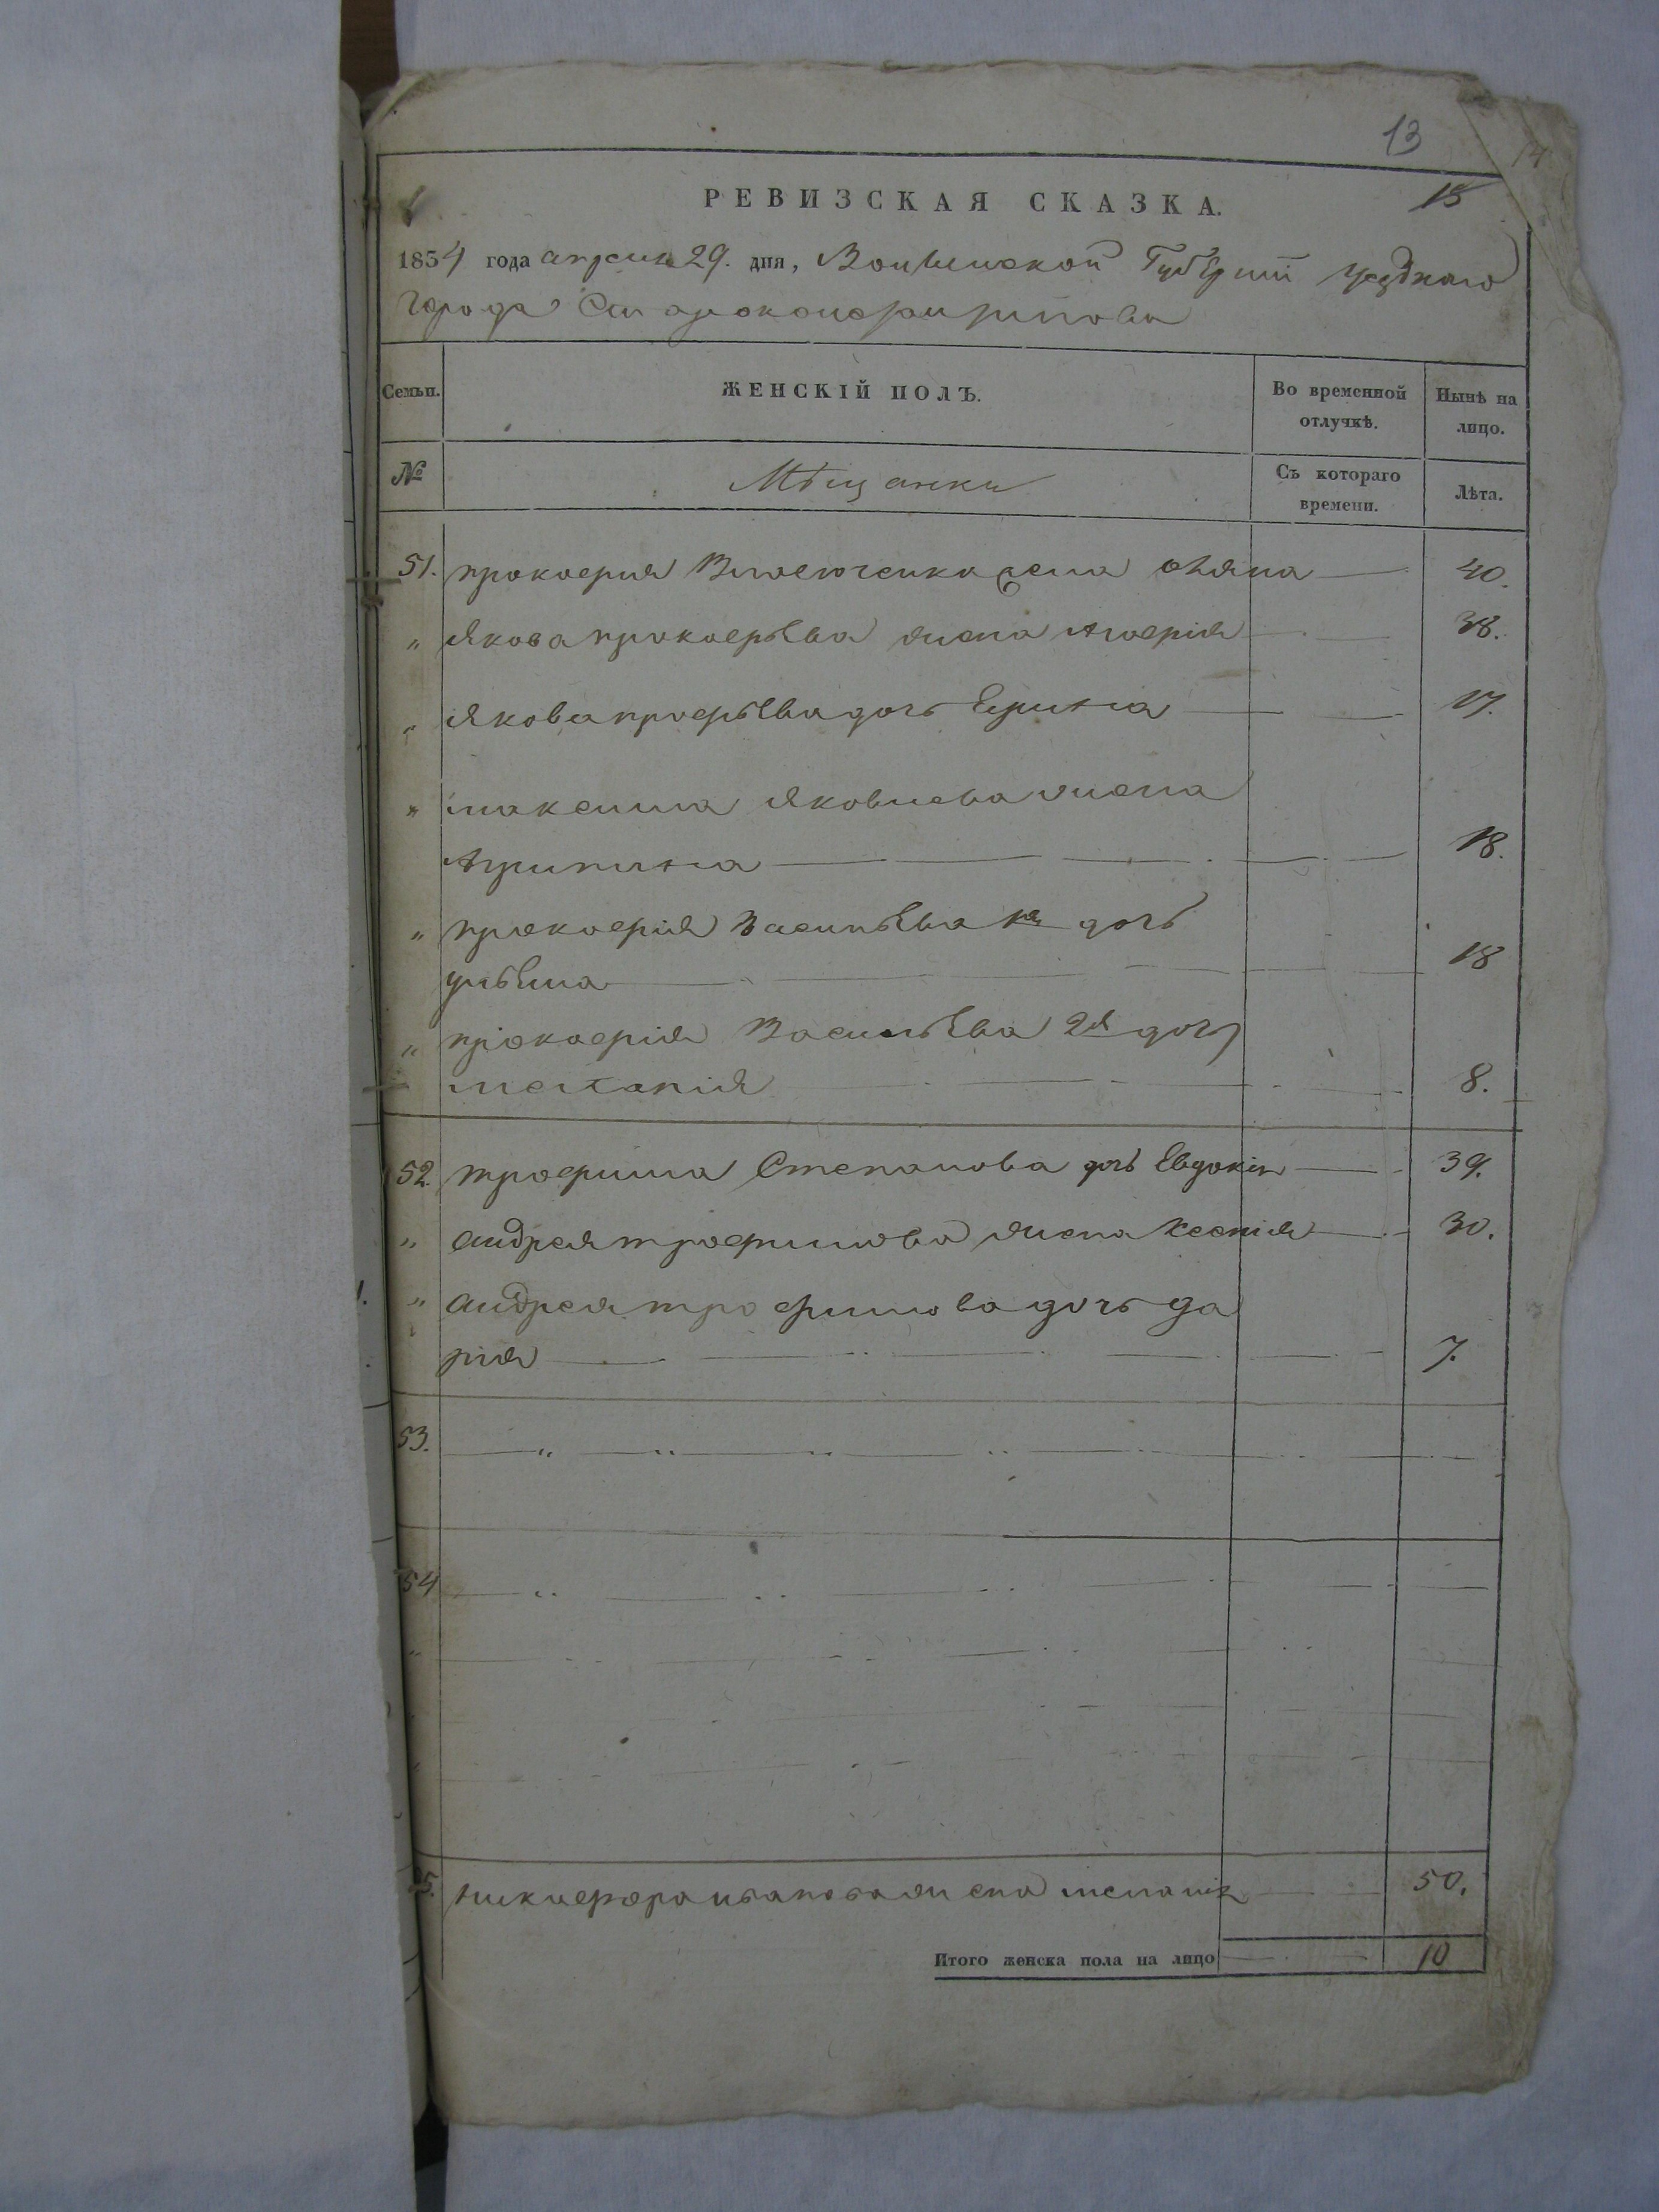 13
14
15
РЕВИЗСКАЯ СКАЗКА.
1854 года апреля 29. дня, Волынской Губернiи уезднаго
города Староконстантинова
Семьи. ЖЕНСКІЙ ПОЛЪ. Во временной отлучкѣ. Нынѣ на лицо.
№ Мѣщанки Съ котораго времени. Лѣта.
51. прокофия жена 40.
" Якова прокофьева жена 38.
" Якова дочь 17.
" максима Яковлева жена
Агрипина 18.
" прокофія Васильева 1я дочь
ульяна 18
" прокофія Васильева 2я дочь
меланія 8.
52. трофима Степанова дочь Евдокія 39.
" андрея трофимова жена Ксенія 30.
" андрея трофимова дочь да
рия 7.
53.
54
55. никифора иванова жена 50.
Итого женска пола на лицо 10